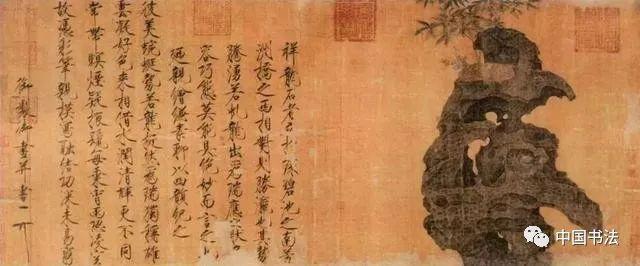 祥龍石者立於環碧池之南芳
洲橋之西相對則勝瀛也其勢
騰湧若虬龍出為瑞應之狀奇
容巧態莫能具絕妙而言之也
廼親繪縑素聊以四韻紀之
彼美蜿蜒勢若龍挺然為瑞獨稱雄
雲凝好色來相借水潤清輝更不同
常帶暝煙疑振鬣每乘宵雨恐凌空
故憑彩筆親模寫融結功深未易窮
御製御畫并書
中国书法